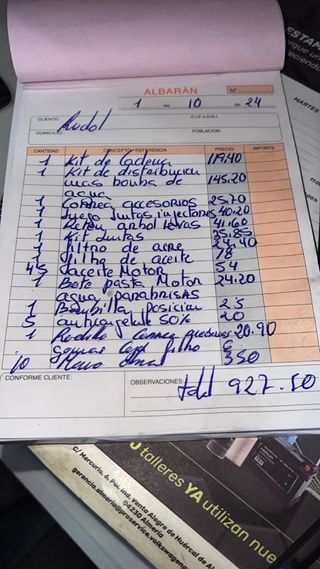 ALBARÁN
Nº
1 de 10 de 24
CLIENTE:
Rudol
C.I.F./D.N.I.
DOMICILIO:
POBLACIÓN:
CANTIDAD CONCEPTO / REFERENCIA PRECIO IMPORTE
1 Kit de Cadena 119.40
1 Kit de distribucion
mas bomba de 145.20
agua
1 Correa accesorios 25.70
1 Juego Juntas injectores 40.20
1 Reten arbol levas 41.60
1 Kit Juntas 35.85
1 filtro de aire 24.40
1 filtro de aceite 18
4'5 aceite Motor 54
1 Bote pasta Motor 24.20
agua parabrisas
1 Bombilla posicion 25
5 anticongelante 50% 20
1 Rodillo Correa 20.90
6
10 Mano 350
CONFORME CLIENTE:
OBSERVACIONES:
total 927.50
talleres YA utilizan nue
C/ Mercurio, 6, Pol. Ind. Venta Alegre de Huércal de Al
04230 Almería
gerencia.almeria@proservice.volkswagen
MARTES